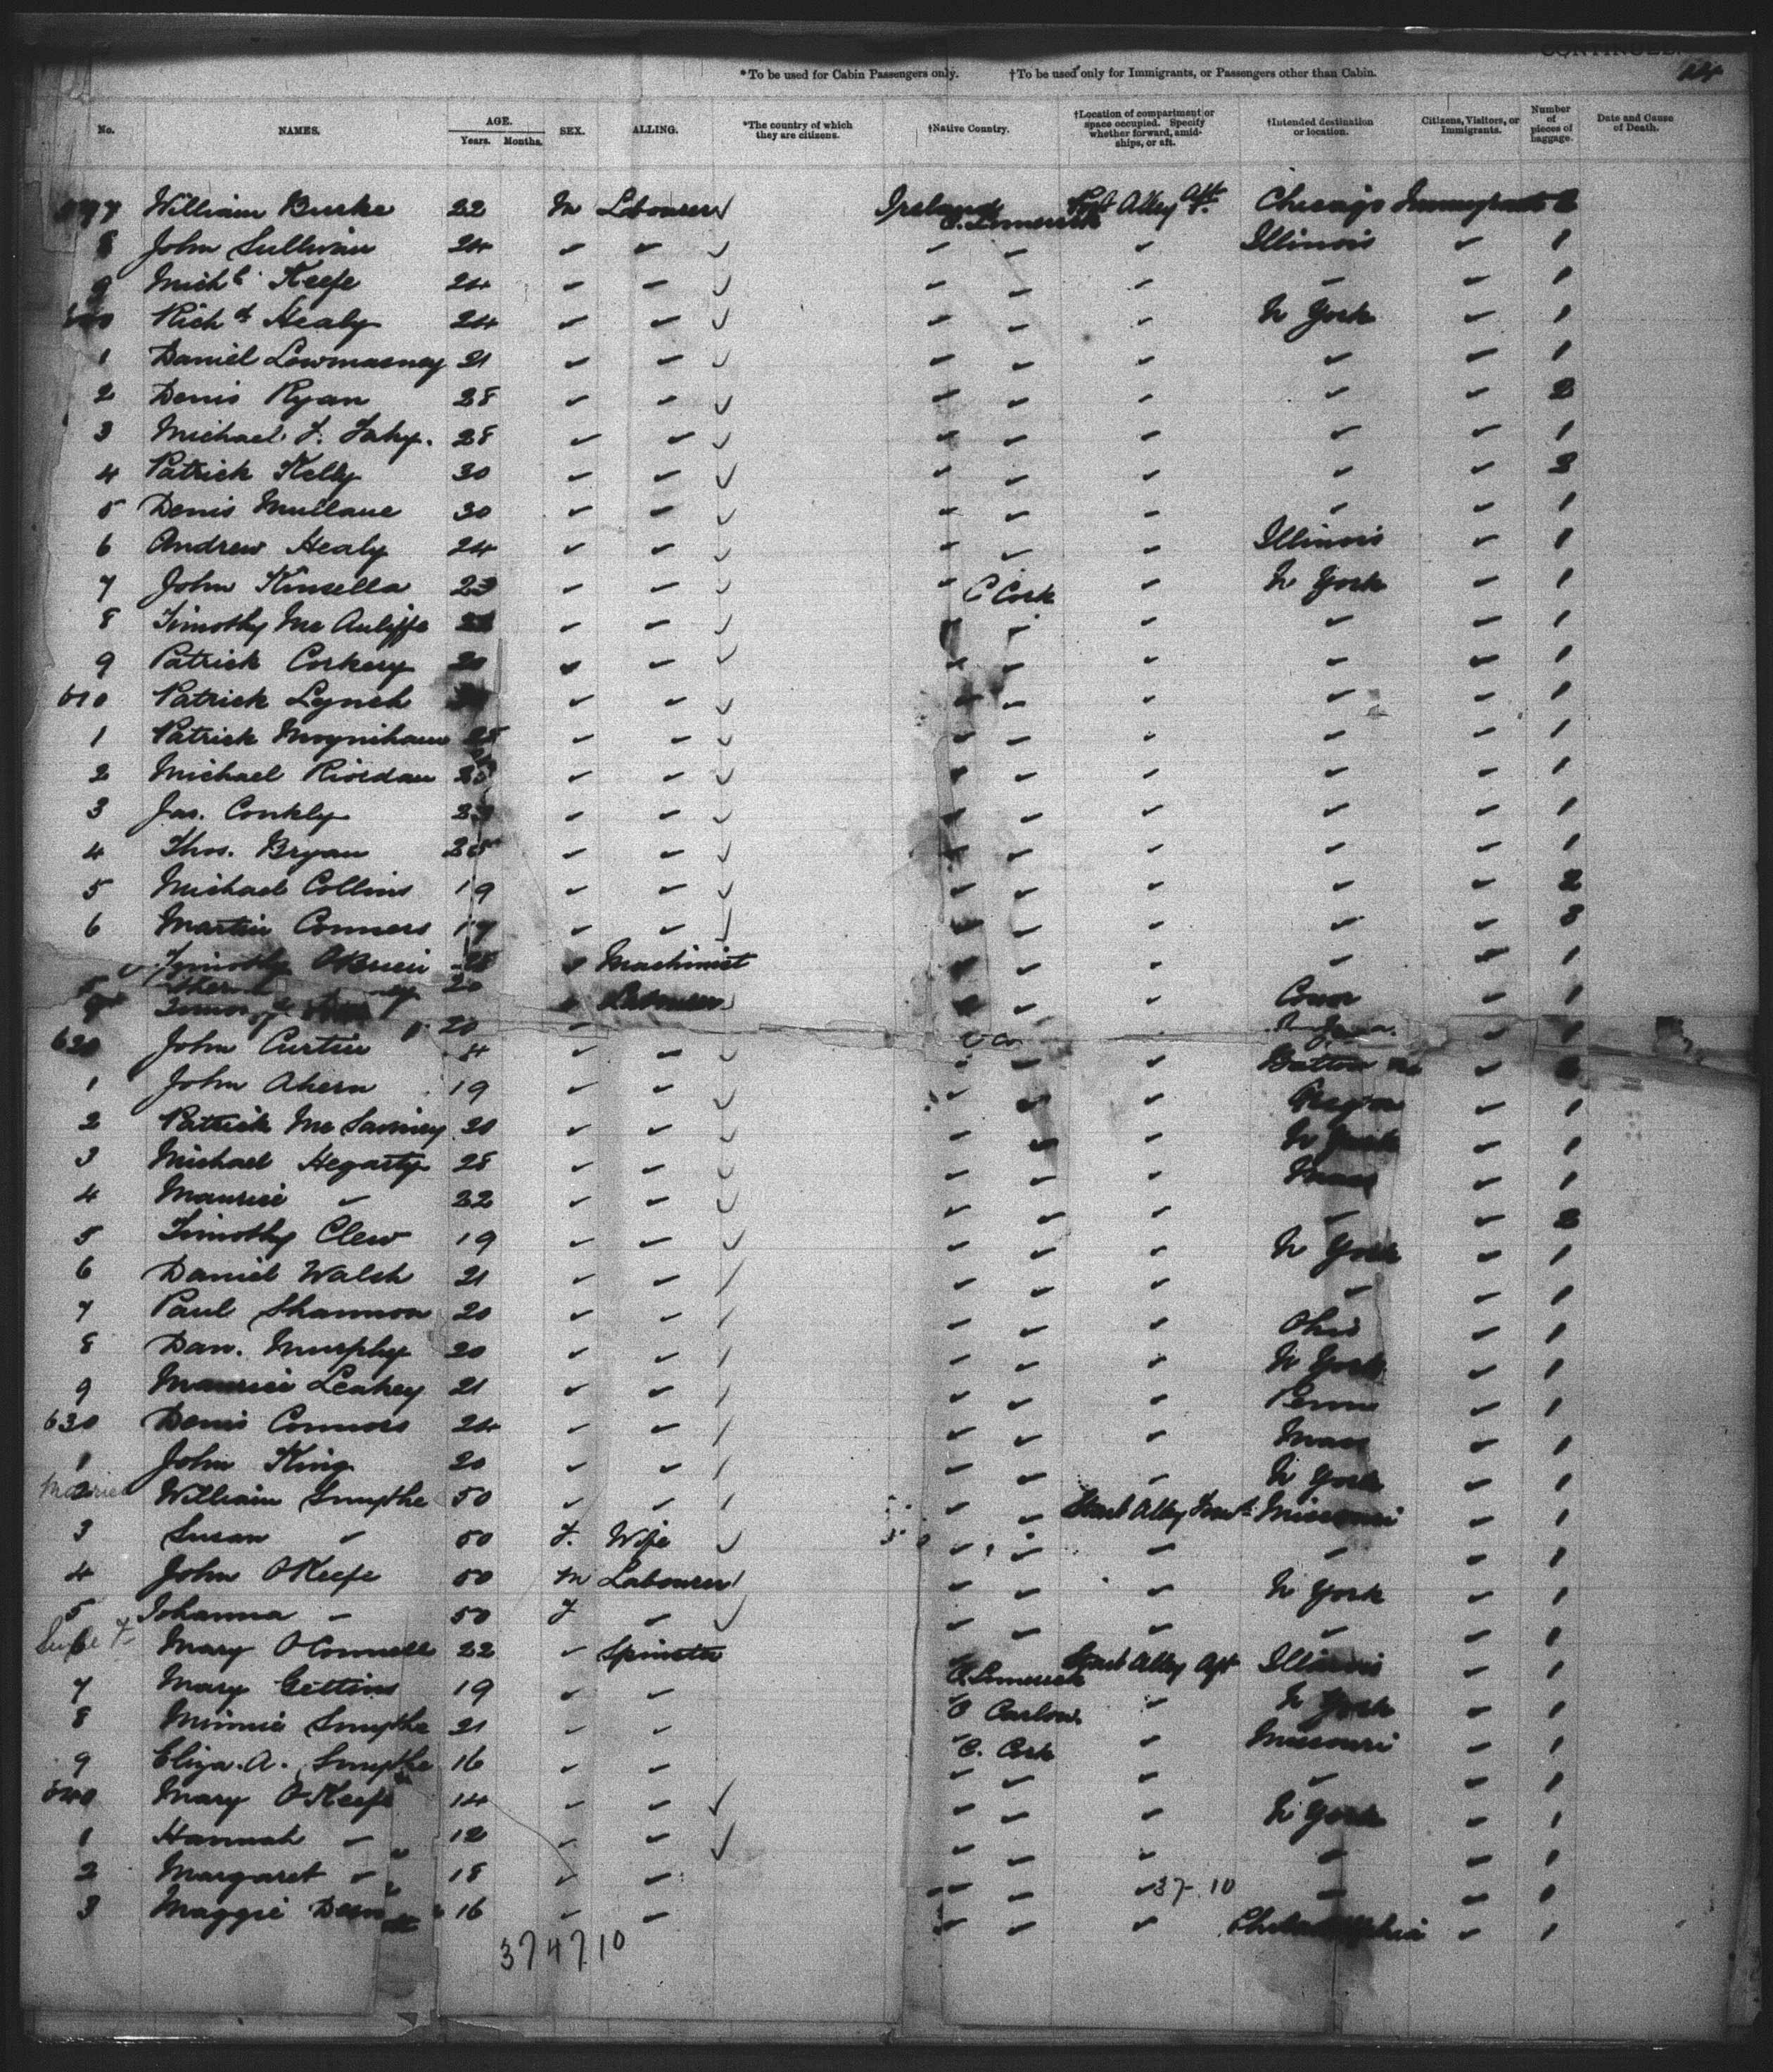 CONTINUED.
*To be used for Cabin Passengers only. †To be used only for Immigrants, or Passengers other than Cabin. 14
No. NAMES. AGE. Years. Months. SEX. ALLING. *The country of which they are citizens. †Native Country. †Location of compartment or space occupied. Specify whether forward, amidships, or aft. †Intended destination or location. Citizens, Visitors, or Immigrants. Number of pieces of baggage. Date and Cause of Death.
William Burke 22 M Labourer Ireland C. Limerick Alley Aft. Chicago Immigrant 2
8 John Sullivan 24 " " " " " Illinois " 1
9 Michl Keefe 24 " " " " " " " 1
Richd Healy 24 " " " " " N York " 1
1 Daniel Lowmasney 21 " " " " " " " 1
2 Denis Ryan 28 " " " " " " " 2
3 Michael F. Fahy. 28 " " " " " " " 1
4 Patrick Kelly 30 " " " " " " "
5 Denis Mullane 30 " " " " " " " 1
6 Andrew Healy 24 " " " " " Illinois " 1
7 John Kinsella 23 " " " C Cork " N York " 1
8 Timothy Mc Auliffe " " " " " " " 1
9 Patrick Corkery 20 " " " " " " " 1
610 Patrick Lynch " " " " " " " 1
1 Patrick Moynihan 25 " " " " " " " 1
2 Michael Riordan 25 " " " " " " " 1
3 Jas. Conkly " " " " " " " 1
4 Thos. Bryan 25 " " " " " " " 1
5 Michael Collins 19 " " " " " " " 2
6 Martin Connors 19 " " " " " " "
Timothy OBrien 28 " Machinist " " " " " 1
20 " Labourer " " " Conn " 1
20 " " 1
620 John Curtin " " " " " "
1 John Ahern 19 " " " " " " 1
2 Patrick Mc 20 " " " " " N York " 1
3 Michael Hegarty 28 " " " " " Mass " 1
4 Maurice " 22 " " " " " " " 2
5 Timothy Clew 19 " " " " " N York " 1
6 Daniel Walsh 21 " " " " " " " 1
7 Paul Shannon 20 " " " " " Ohio " 1
8 Dan. Murphy 20 " " " " " N York " 1
9 Maurice Leahey 21 " " " " " Penn " 1
630 Denis Connors 24 " " " " " Mass " 1
1 John King 20 " " " " " N York " 1
2 William Smythe 50 " " " " Alley Forwd Missouri " 1
3 Susan " 50 F. Wife " " " " " 1
4 John OKeefe 50 M Labourer " " " N York " 1
5 Johanna " 50 F " " " " " " 1
6 Mary OConnell 22 " Spinster " C. Limerick Alley Aft Illinois " 1
7 Mary Gettins 19 " " " C Carlow. " N York " 1
8 Minnie Smythe 21 " " " C. Cork " Missouri " 1
9 Eliza. A. Smythe 16 " " " " " " " 1
640 Mary OKeefe 14 " " " " " N York " 1
1 Hannah " 12 " " " " " " " 1
2 Margaret " 18 " " " " " 37-10 " " 1
3 Maggie 16 " " " " " Philadelphia " 1
374710